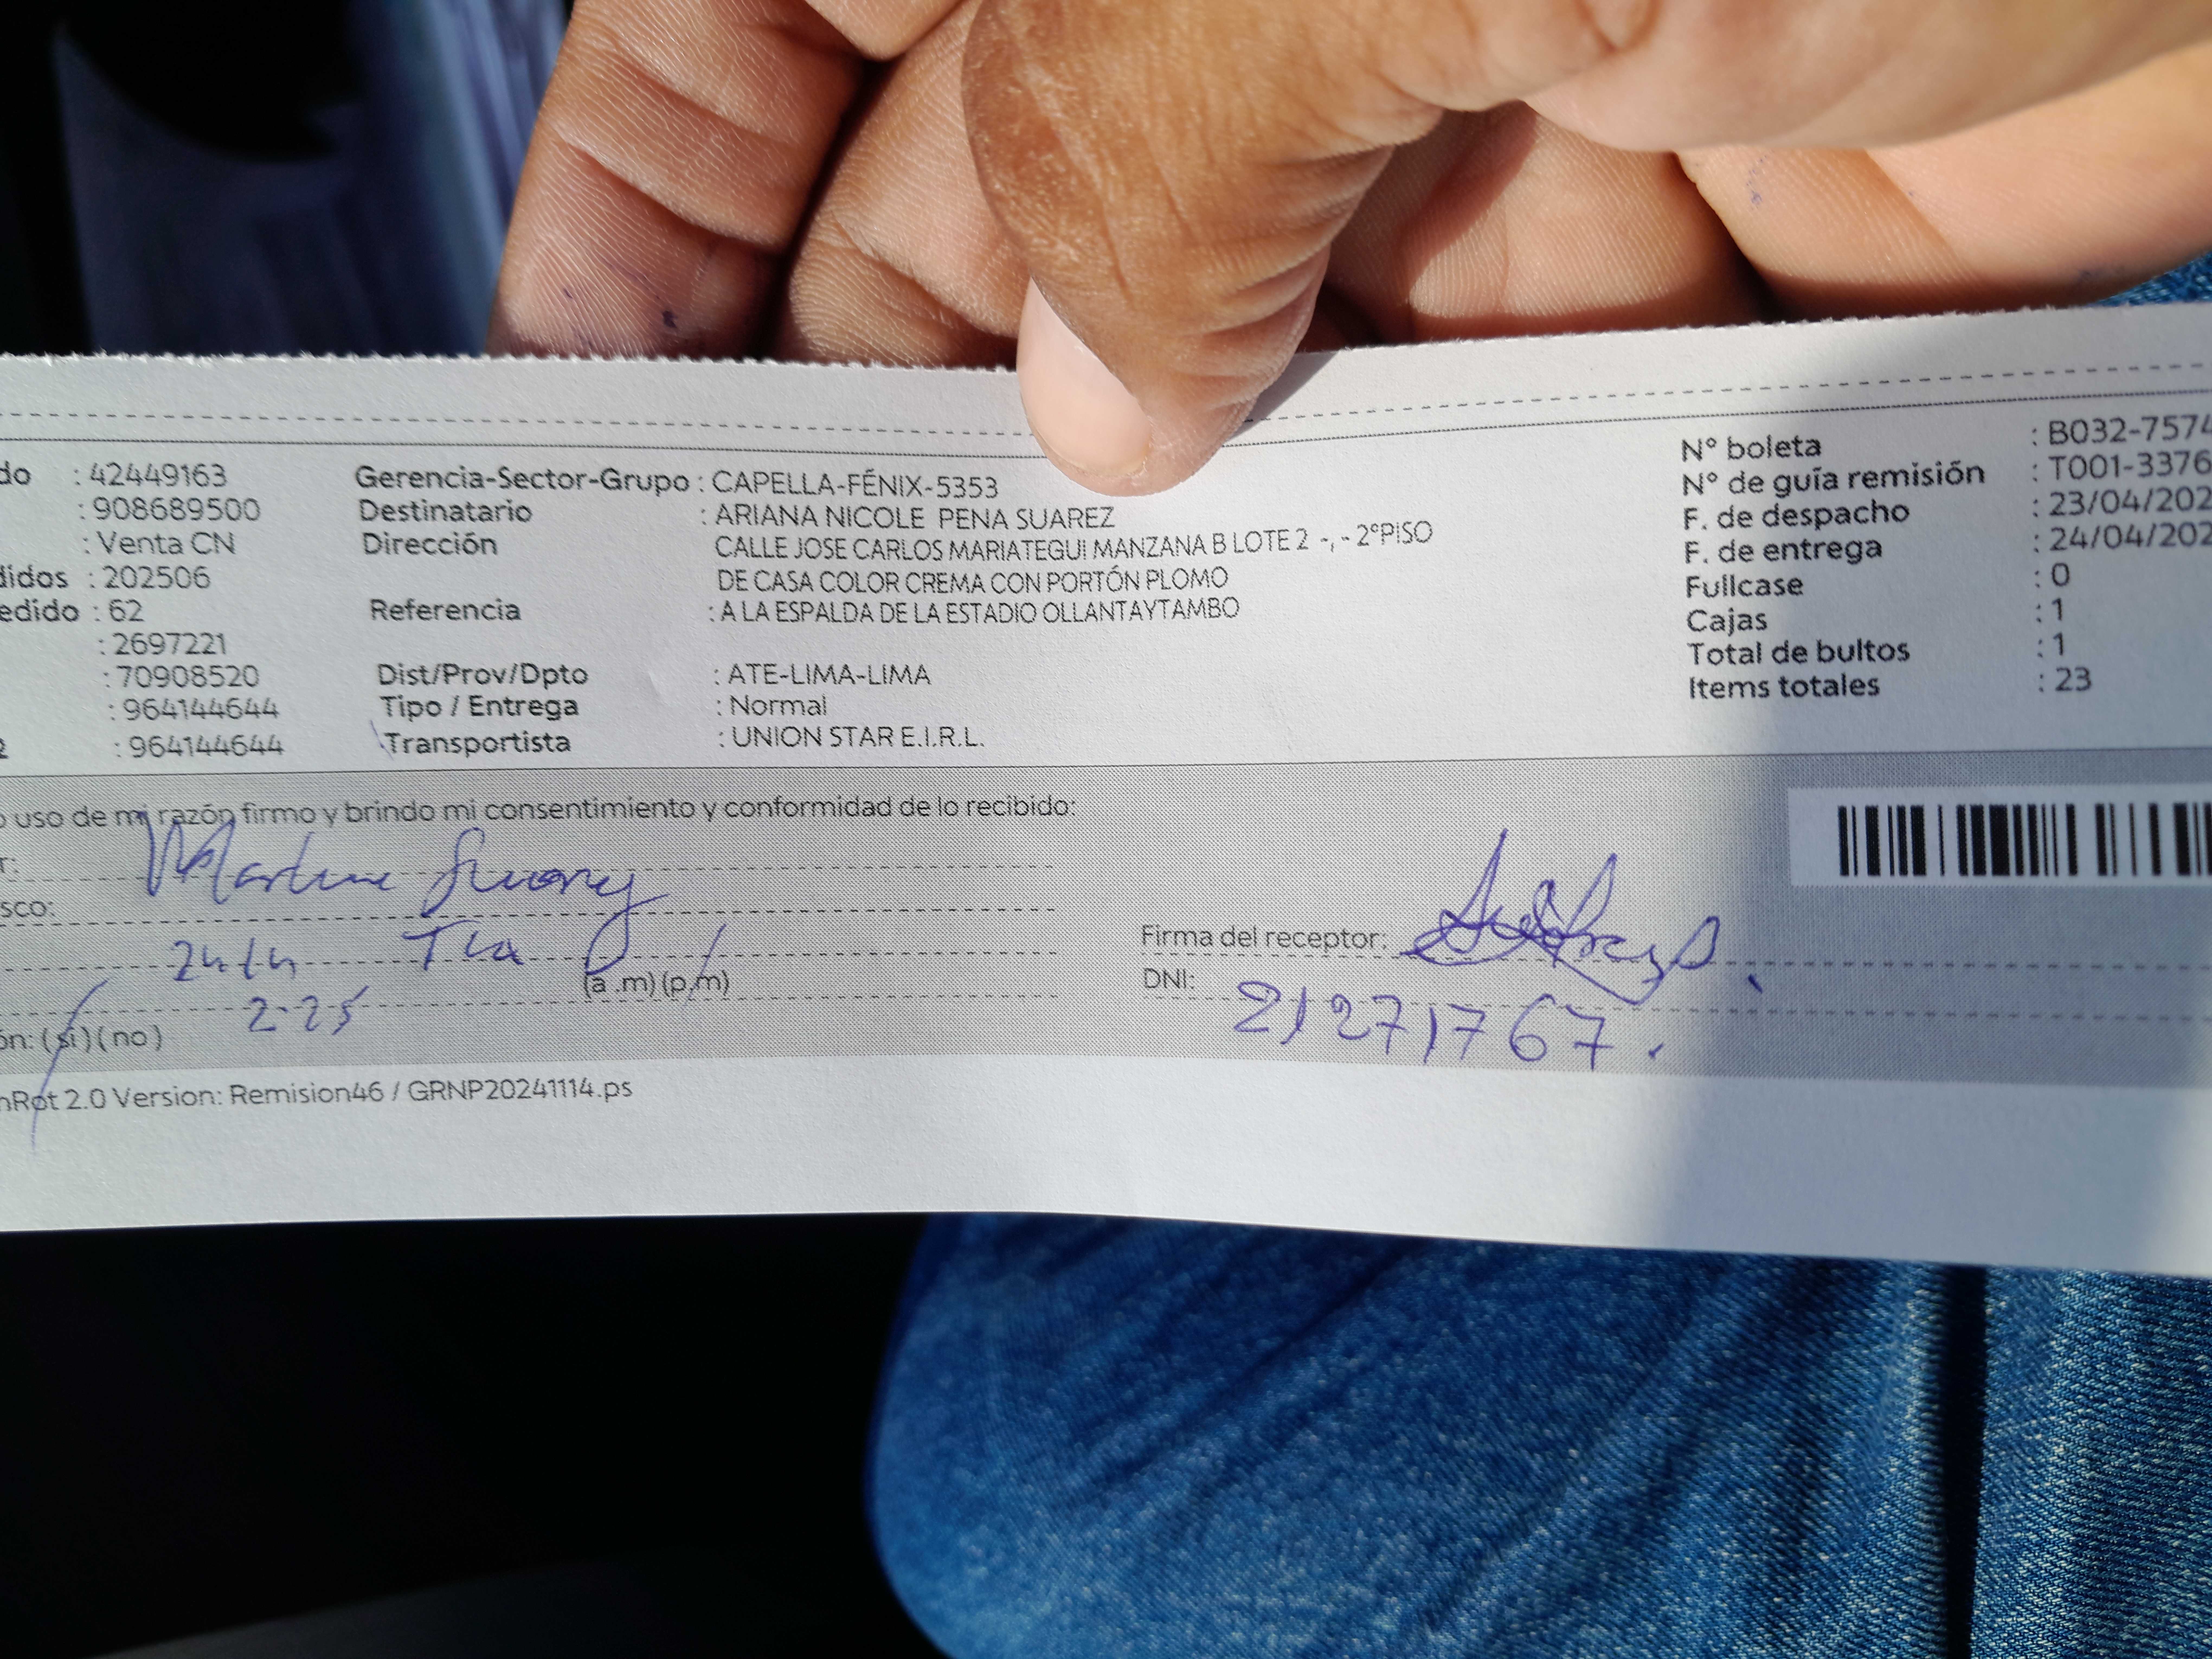 do : 42449163 Gerencia-Sector-Grupo : CAPELLA-FÉNIX-5353 N° boleta : B032-7574
: 908689500 Destinatario : ARIANA NICOLE PENA SUAREZ N° de guía remisión : T001-3376
: Venta CN Dirección CALLE JOSE CARLOS MARIATEGUI MANZANA B LOTE 2 -, - 2°PISO F. de despacho : 23/04/202
didos : 202506 DE CASA COLOR CREMA CON PORTÓN PLOMO F. de entrega : 24/04/202
edido : 62 Referencia : A LA ESPALDA DE LA ESTADIO OLLANTAYTAMBO Fullcase : 0
: 2697221 Cajas : 1
: 70908520 Dist/Prov/Dpto : ATE-LIMA-LIMA Total de bultos : 1
: 964144644 Tipo / Entrega : Normal Items totales : 23
2 : 964144644 Transportista : UNION STAR E.I.R.L.
o uso de mi razón firmo y brindo mi consentimiento y conformidad de lo recibido:
r:
sco: Tia
24/4 (a .m) (p.m) Firma del receptor:
ón: (si) (no) 2.25 DNI: 21271767.
nRot 2.0 Version: Remision46 / GRNP20241114.ps